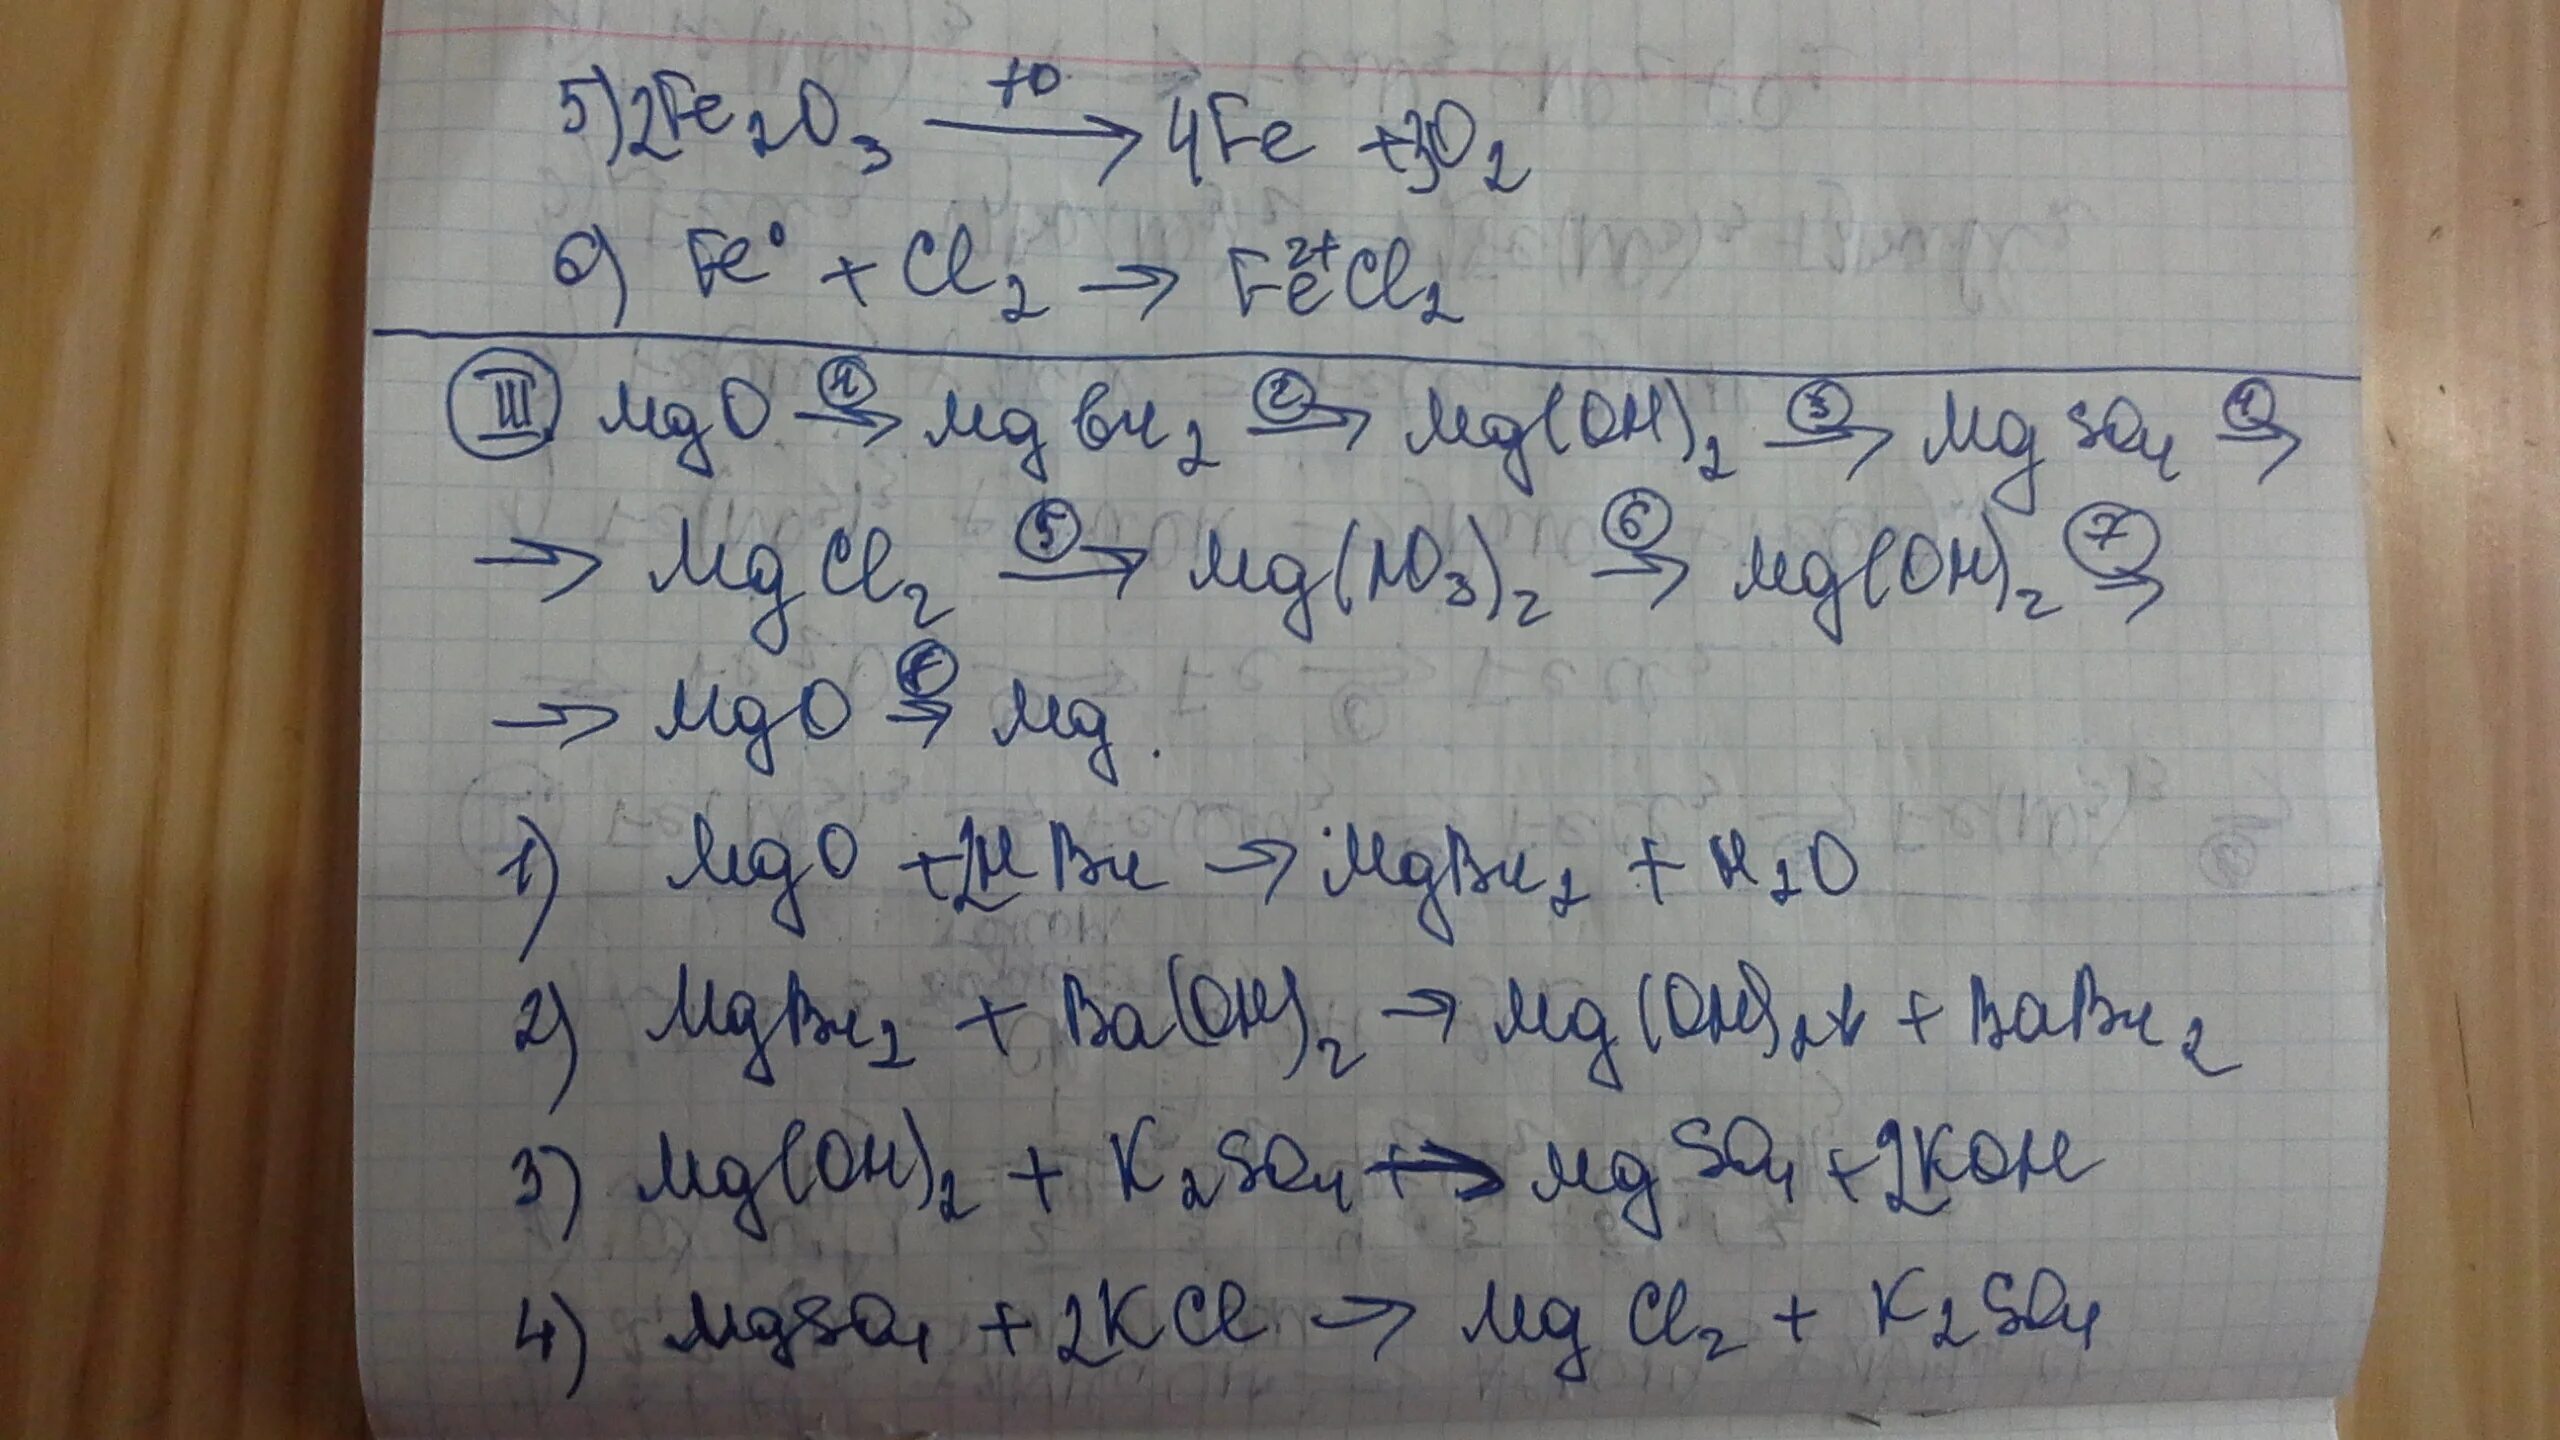 5) 2Fe₂O₃ →(t0) 4Fe + 3O₂
6) Fe⁰ + Cl₂ → Fe²⁺Cl₂
III MgO →(1) MgBr₂ →(2) Mg(OH)₂ →(3) MgSO₄ →(4)
→ MgCl₂ →(5) Mg(NO₃)₂ →(6) Mg(OH)₂ →(7)
→ MgO →(8) Mg.
1) MgO + 2HBr → MgBr₂ + H₂O
2) MgBr₂ + Ba(OH)₂ → Mg(OH)₂↓ + BaBr₂
3) Mg(OH)₂ + K₂SO₄ → MgSO₄ + 2KOH
4) MgSO₄ + 2KCl → MgCl₂ + K₂SO₄